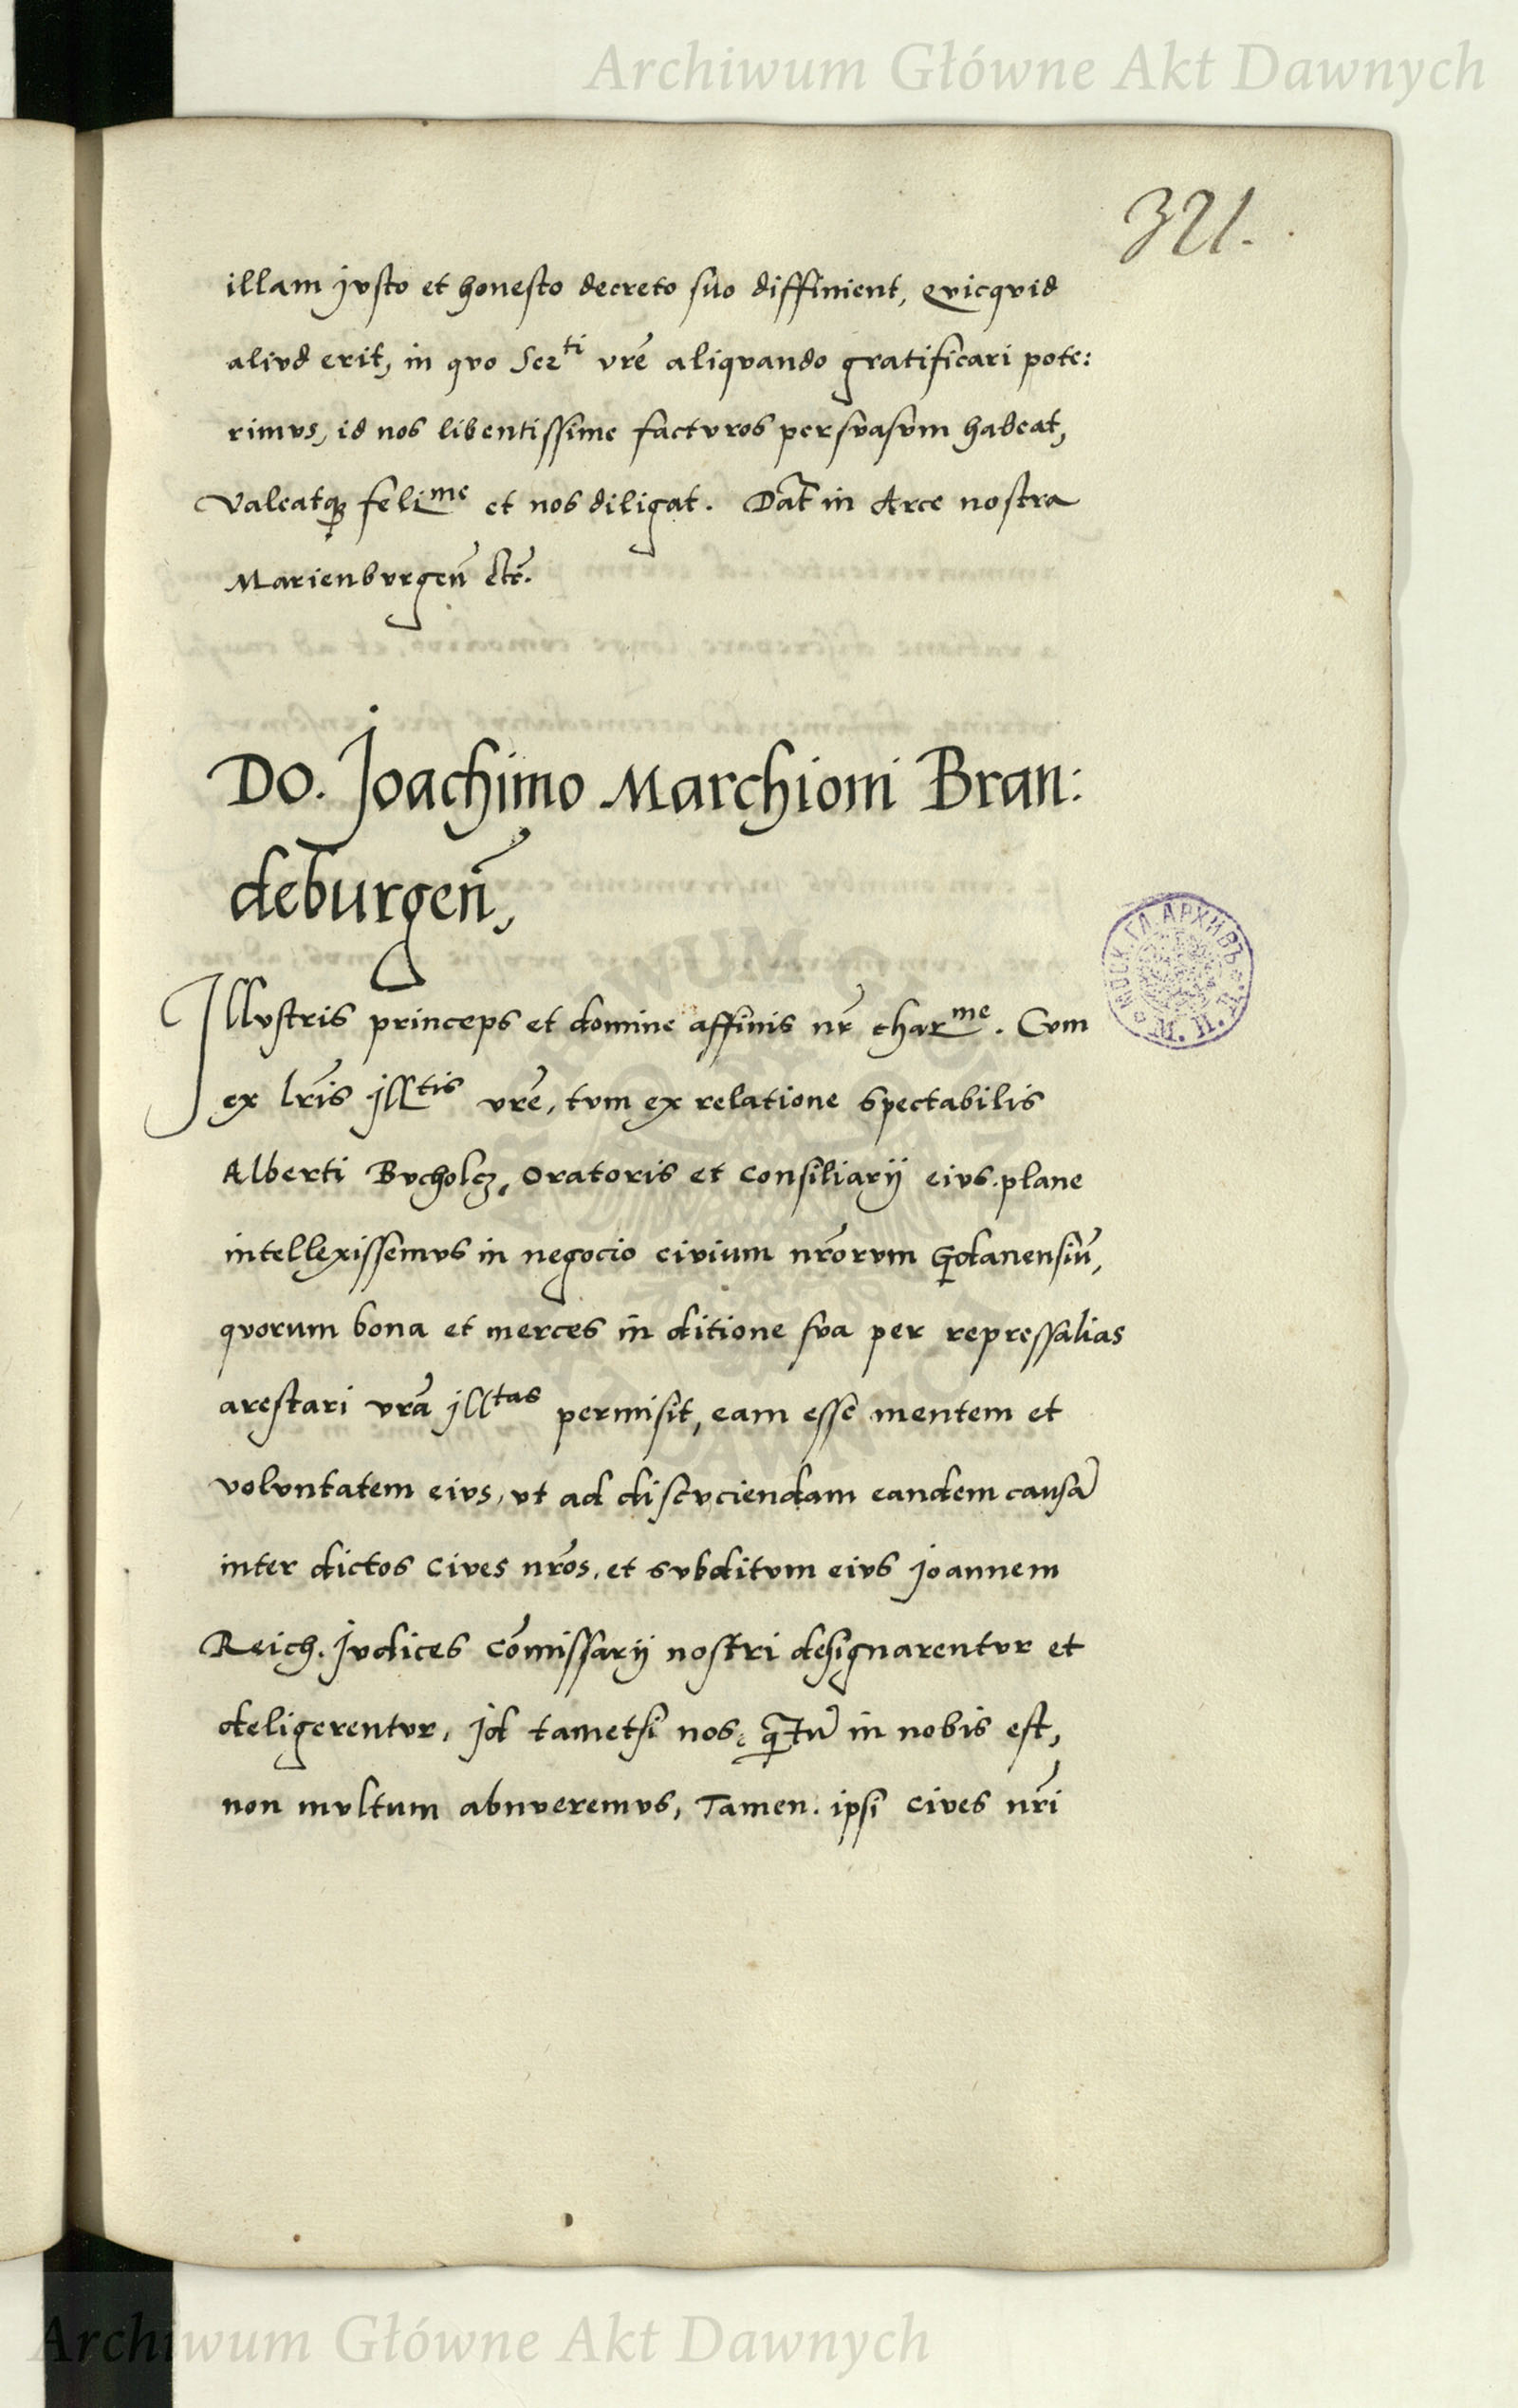 Archiwum Główne Akt Dawnych
321.
illam jvsto et honesto decreto suo diffinient, qvicqvid
alivd erit, in qvo Ser^ti vr̃e aliqvando gratificari pote:
rimvs, id nos libentissime factvros persvasvm habeat,
Valeatq; feli^me et nos diligat. Dat̃ in Arce nostra
Marienbvrgeñ etc̃.
Do. Joachimo Marchioni Bran:
deburgeñ,
Jllvstris princeps et domine affinis nr̃ char^me. Cvm
ex lr̃is jll^tis vr̃e, tvm ex relatione spectabilis
Alberti Bvcholcz, Oratoris et Consiliarij eivs. plane
intellexissemvs in negocio civium nr̃orvm Gdanensiũ,
qvorum bona et merces in ditione sva per repressalias
arestari vr̃a jll^tas permisit, eam esse mentem et
volvntatem eivs, vt ad discvciendam eandem causã
inter dictos Cives nr̃os, et svbditvm eivs Joannem
Reich. Jvdices Com̃issarij nostri designarentvr et
deligerentvr, Jd tametsi nos, qñtũ in nobis est,
non mvltum abnveremvs, Tamen. ipsi Cives nr̃i
МОСК. ГЛ. АРХИВЪ М. И. Д.
ARCHIWUM GŁÓWNE AKT DAWNYCH
Archiwum Główne Akt Dawnych